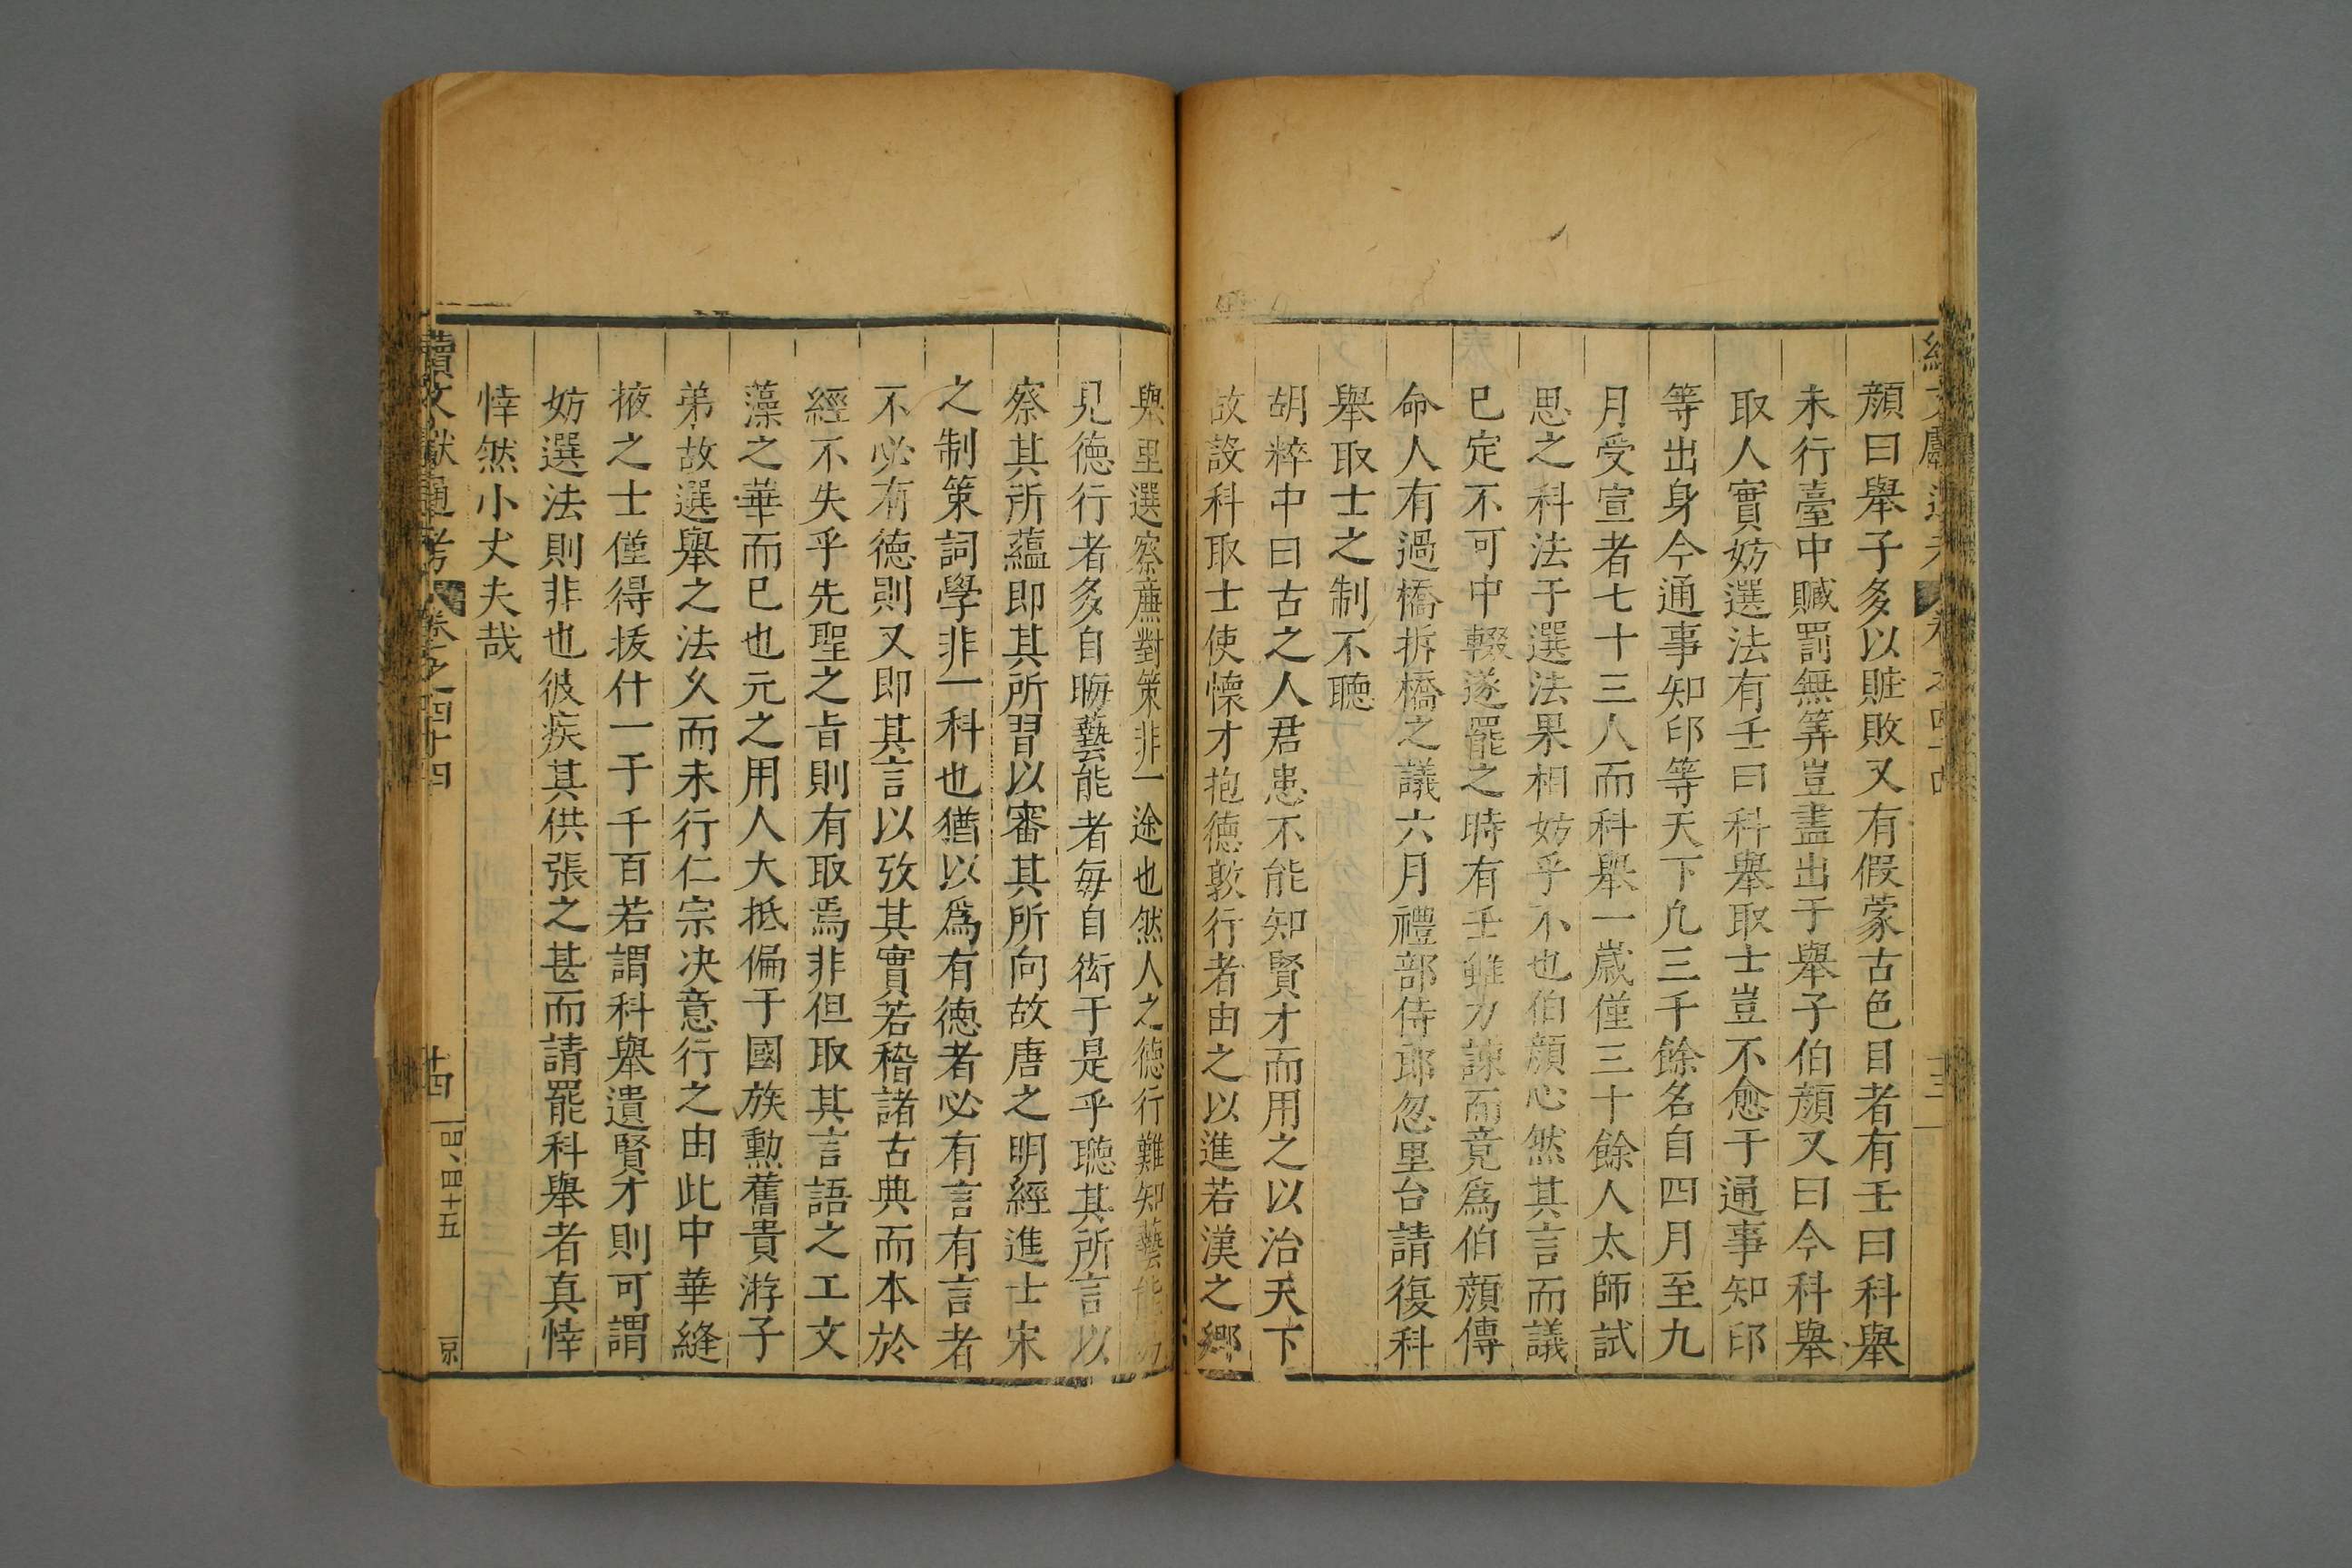 續文獻通考 卷之四十四 十三
顏曰舉子多以賍敗又有假蒙古色目者有壬曰科舉
未行臺中贓罰無筭豈盡出于舉子伯顏又曰今科舉
取人實妨選法有壬曰科舉取士豈不愈于通事知印
等出身今通事知印等天下凢三千餘名自四月至九
月受宣者七十三人而科舉一歲僅三十餘人太師試
思之科法于選法果相妨乎不也伯顏心然其言而議
已定不可中輟遂罷之時有壬雖力諫而竟爲伯顏傳
命人有過橋拆橋之議六月禮部侍郎忽里台請復科
舉取士之制不聽
胡粹中曰古之人君患不能知賢才而用之以治天下
故設科取士使懷才抱德敦行者由之以進若漢之鄉
與里選察廉對策非一途也然人之德行難知藝能
見德行者多自晦藝能者每自衒于是乎聽其所言以
察其所蘊即其所習以審其所向故唐之明經進士宋
之制策詞學非一科也猶以爲有德者必有言有言者
不必有德則又即其言以攷其實若稽諸古典而本於
經不失乎先聖之旨則有取焉非但取其言語之工文
藻之華而已也元之用人大抵偏于國族勲舊貴游子
弟故選舉之法久而未行仁宗决意行之由此中華縫
掖之士僅得拔什一于千百若謂科舉遺賢才則可謂
妨選法則非也彼疾其供張之甚而請罷科舉者真悻
悻然小丈夫哉
續文獻通考 卷之四十四 十四 四、四十五 京